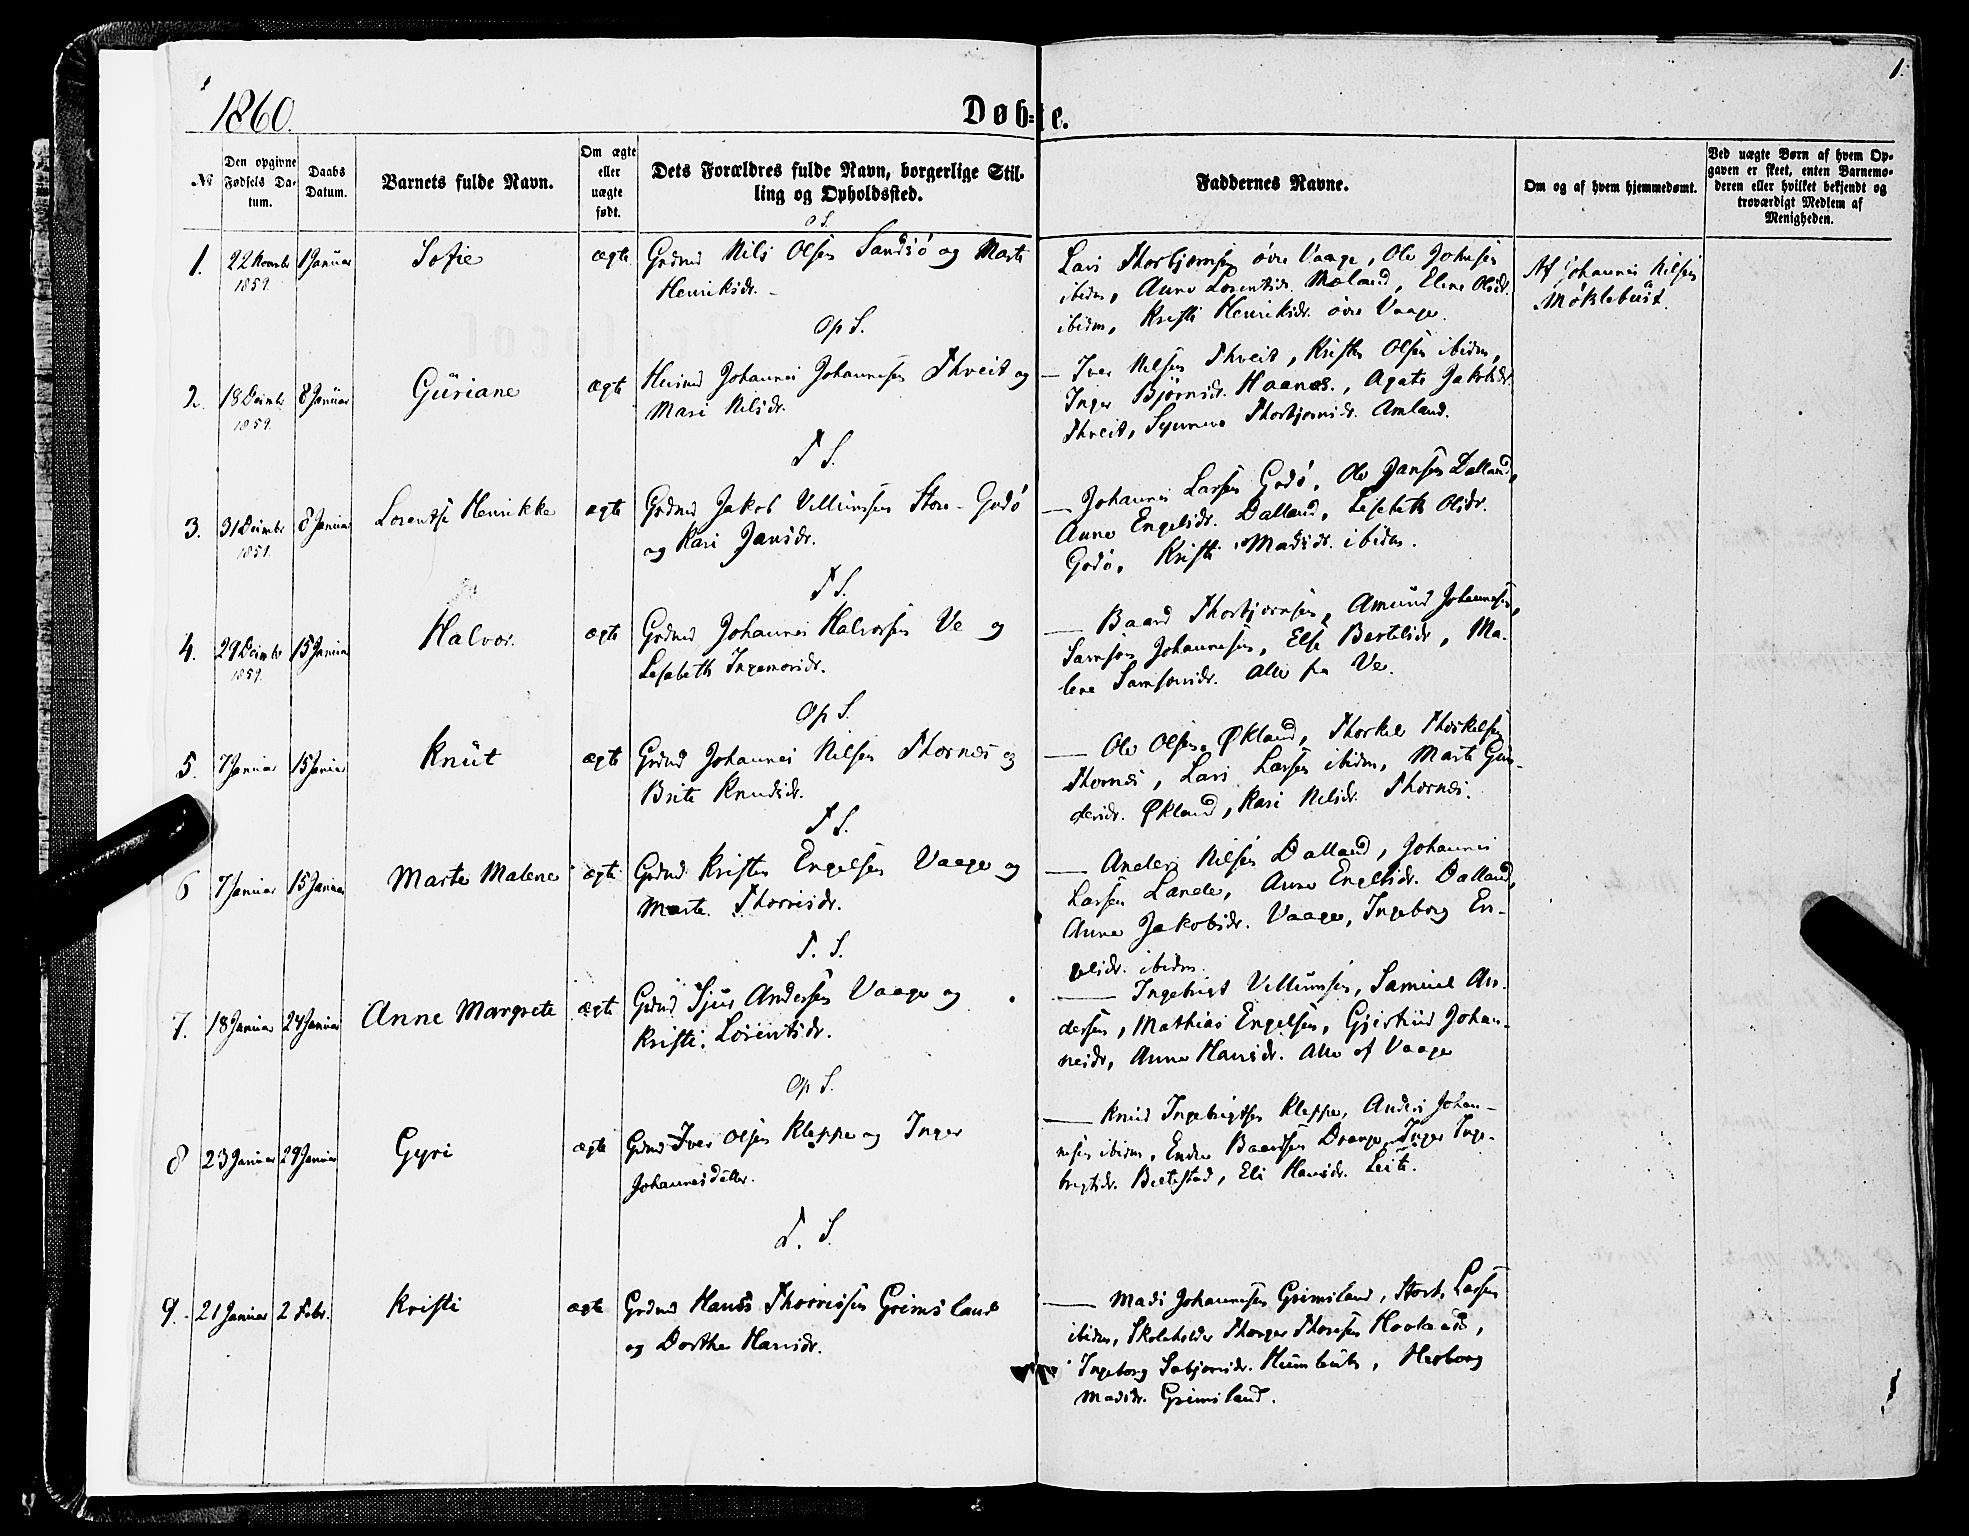 1860.
Døbte.
1.
№
Den opgivne Fødsels Datum.
Daabs Datum.
Barnets fulde Navn.
Om ægte eller uægte født.
Dets Forældres fulde Navn, borgerlige Stilling og Opholdssted.
Faddernes Navne.
Om og af hvem hjemmedømt.
Ved uægte Børn af hvem Opgaven er skeet, enten Barnemoderen eller hvilket bekjendt og troværdigt Medlem af Menigheden.
O S.
1. 22 Novembr 1859 1 Januar Sofie ægte
Grdmd Nils Olsen Sandsø og Marte
Henriksdr.
Lars Thorbjørnsen øvre Vaage, Ole Johnsen
ibidm, Anne Lorentsdr. Mæland, Elene Olsdr.
ibidm, Kristi Henriksdr. øvre Vaage.
Af Johannes Nilsen
Møklebust.
Op S.
2. 18 Decmbr 1859. 8 Januar Guriane ægte
Huusmd Johannes Johannesen Thveit og
Mari Nilsdr.
— Iver Nilsen Thveit, Kristen Olsen ibidm,
Inger Bjørnsdr. Haanes., Agate Jakobsdr.
Thveit, Synneve Thorbjørnsdr. Amland.
T S.
3. 31 Decmbr 1859. 8 Januar Lorentse Henrikke ægte
Grdmd Jakob Villumsen Store-Godø
og Kari Jansdr.
— Johannes Larsen Godø, Ole Jansen Dalland,
Anne Engelsdr. Dalland, Lisebeth Olsdr.
Godø, Kristi Madsdr. ibidm.
T S.
4. 29 Decmbr 1859. 15 Januar Halvor. ægte
Grdmd Johannes Halvorsen Ve og
Lisebeth Ingemorsdr.
— Baard Thorbjørnsen, Amund Johannesen,
Samson Johannesen, Else Bertelsdr, Ma-
lene Samsonsdr. Alle fra Ve.
Op S.
5. 7 Januar 15 Januar Knut ægte
Grdmd Johannes Nilsen Thornæs og
Brite Knudsdr.
— Ole Olsen Økland, Thorkel Thorkelsen
Thornæs, Lars Larsen ibidm, Marte Gun-
dersdr. Økland, Kari Nilsdr. Thornæs.
T S.
6 7 Januar 15 Januar Marte Malene ægte
Grdmd Kristen Engelsen Vaage og
Marte Thorrisdr.
— Anders Nilsen Dalland, Johannes
Larsen Lande, Anne Engelsdr. Dalland,
Anne Jakobsdr. Vaage, Ingeborg En-
gelsdr. ibidm.
T. S.
7. 18 Januar 24 Januar Anne Margrete ægte
Grdmd Sjur Andersen Vaage og
Kristi Lorentsdr.
— Ingebrigt Villumsen, Samuel An-
dersen, Mathias Engelsen, Gjertrud Johan-
nesdr, Anne Hansdr. Alle af Vaage
Op S.
8 23 Januar 29 Januar Gyri ægte
Grdmd Iver Olsen Kleppe og Inger
Johannesdatter.
— Knud Ingebrigtsen Kleppe, Anders Johan-
nesen ibidm, Endre Baardsen Drange, Inger Inge-
brigtsdr. Beltestad, Eli Hansdr. Leite.
T. S.
9. 21 Januar 2 Febr. Kristi ægte
Grdmd Hans Thorrissen Grimsland
og Dorthea Hansdr.
— Mads Johannesen Grimsland, Larsen
ibidm, Skoleholder Thorger Thoresen,
Ingeborg Humlevik, Herborg
Madsdr. Grimsland.